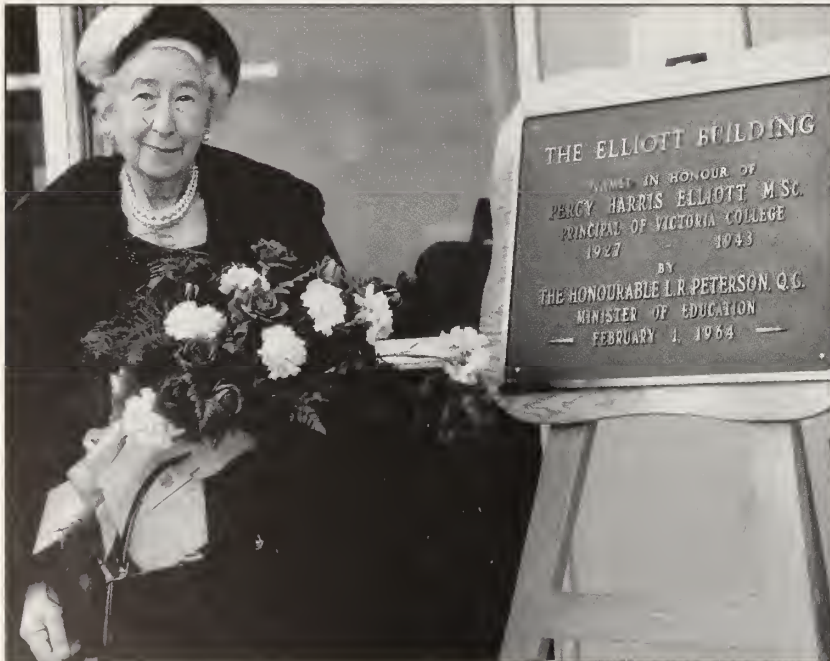 THE ELLIOTT BUILDING
NAMED IN HONOUR OF
PERCY HARRIS ELLIOTT M.Sc.
PRINCIPAL OF VICTORIA COLLEGE
1927 — 1943
BY
THE HONOURABLE L.R. PETERSON, Q.C.
MINISTER OF EDUCATION
— FEBRUARY 1, 1964 —